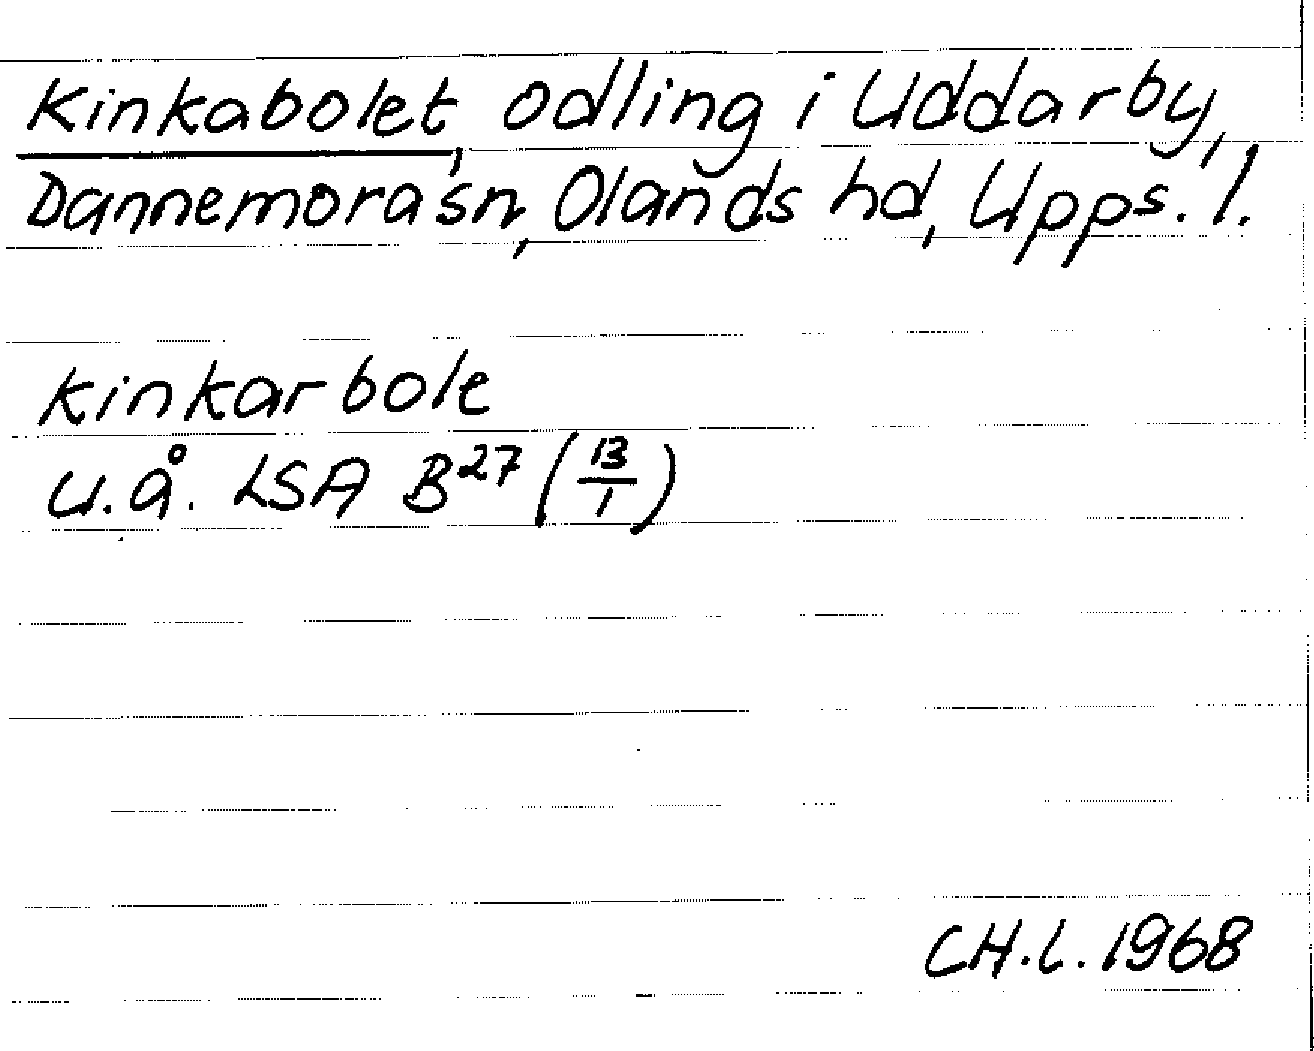 Kinkabolet, odling i Uddarby,
Dannemora sn, Olands hd, Upps. l.
Kinkarbole
u.å. LSA B²⁷ (13/1)
CH.L. 1968